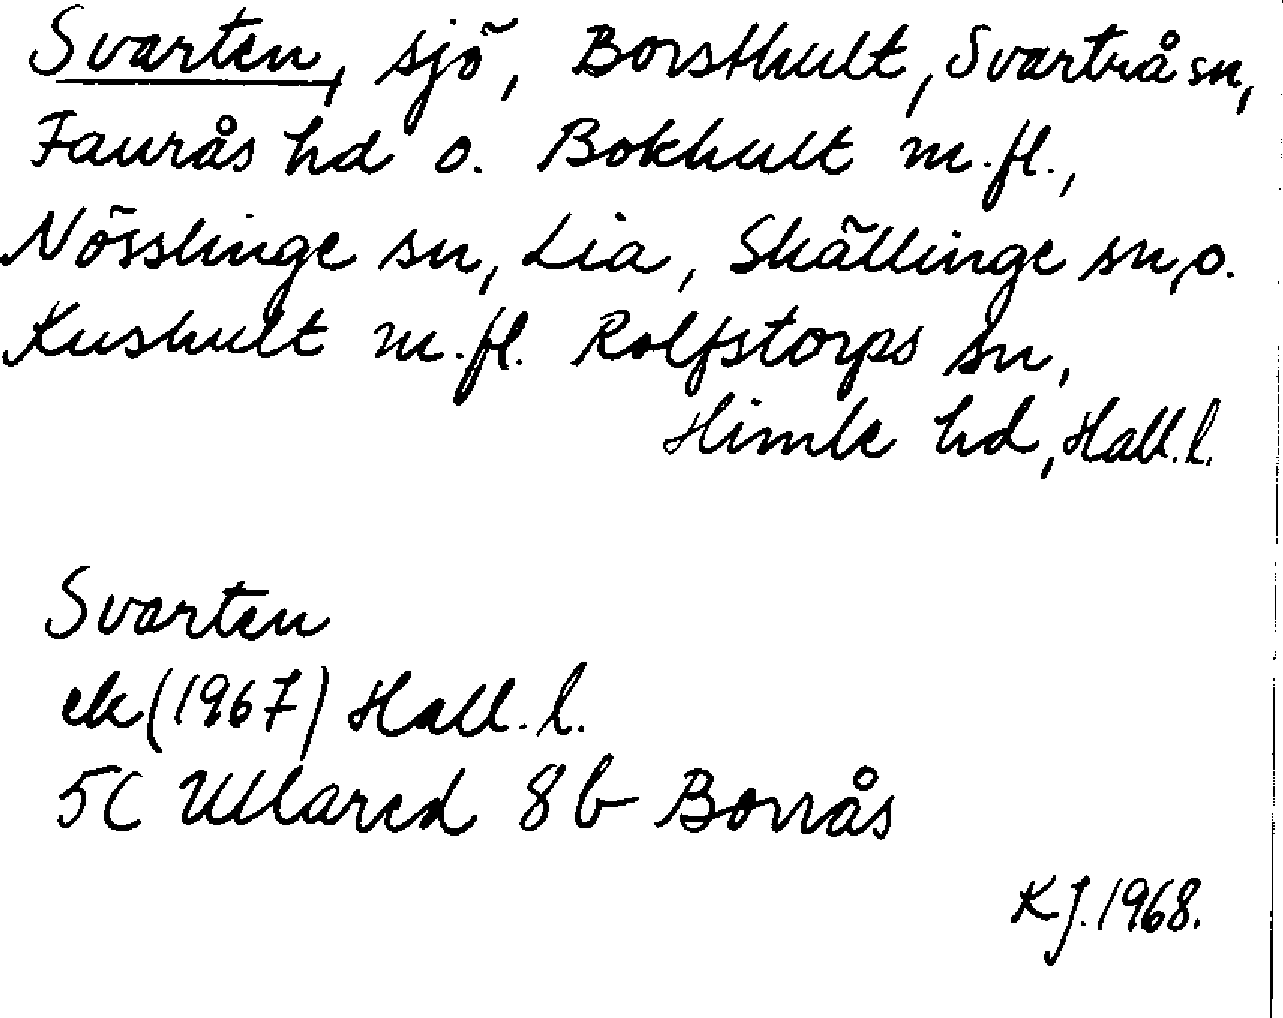 Svarten, sjö, Borsthult, Svartrå sn,
Faurås hd o. Bokhult m.fl.,
Nösslinge sn, Lia, Skällinge sn, o.
Kushult m.fl. Rolfstorps sn,
Himle hd, Hall.l.
Svarten
ek (1967) Hall.l.
5C Ullared 8b Borrås
KJ. 1968.